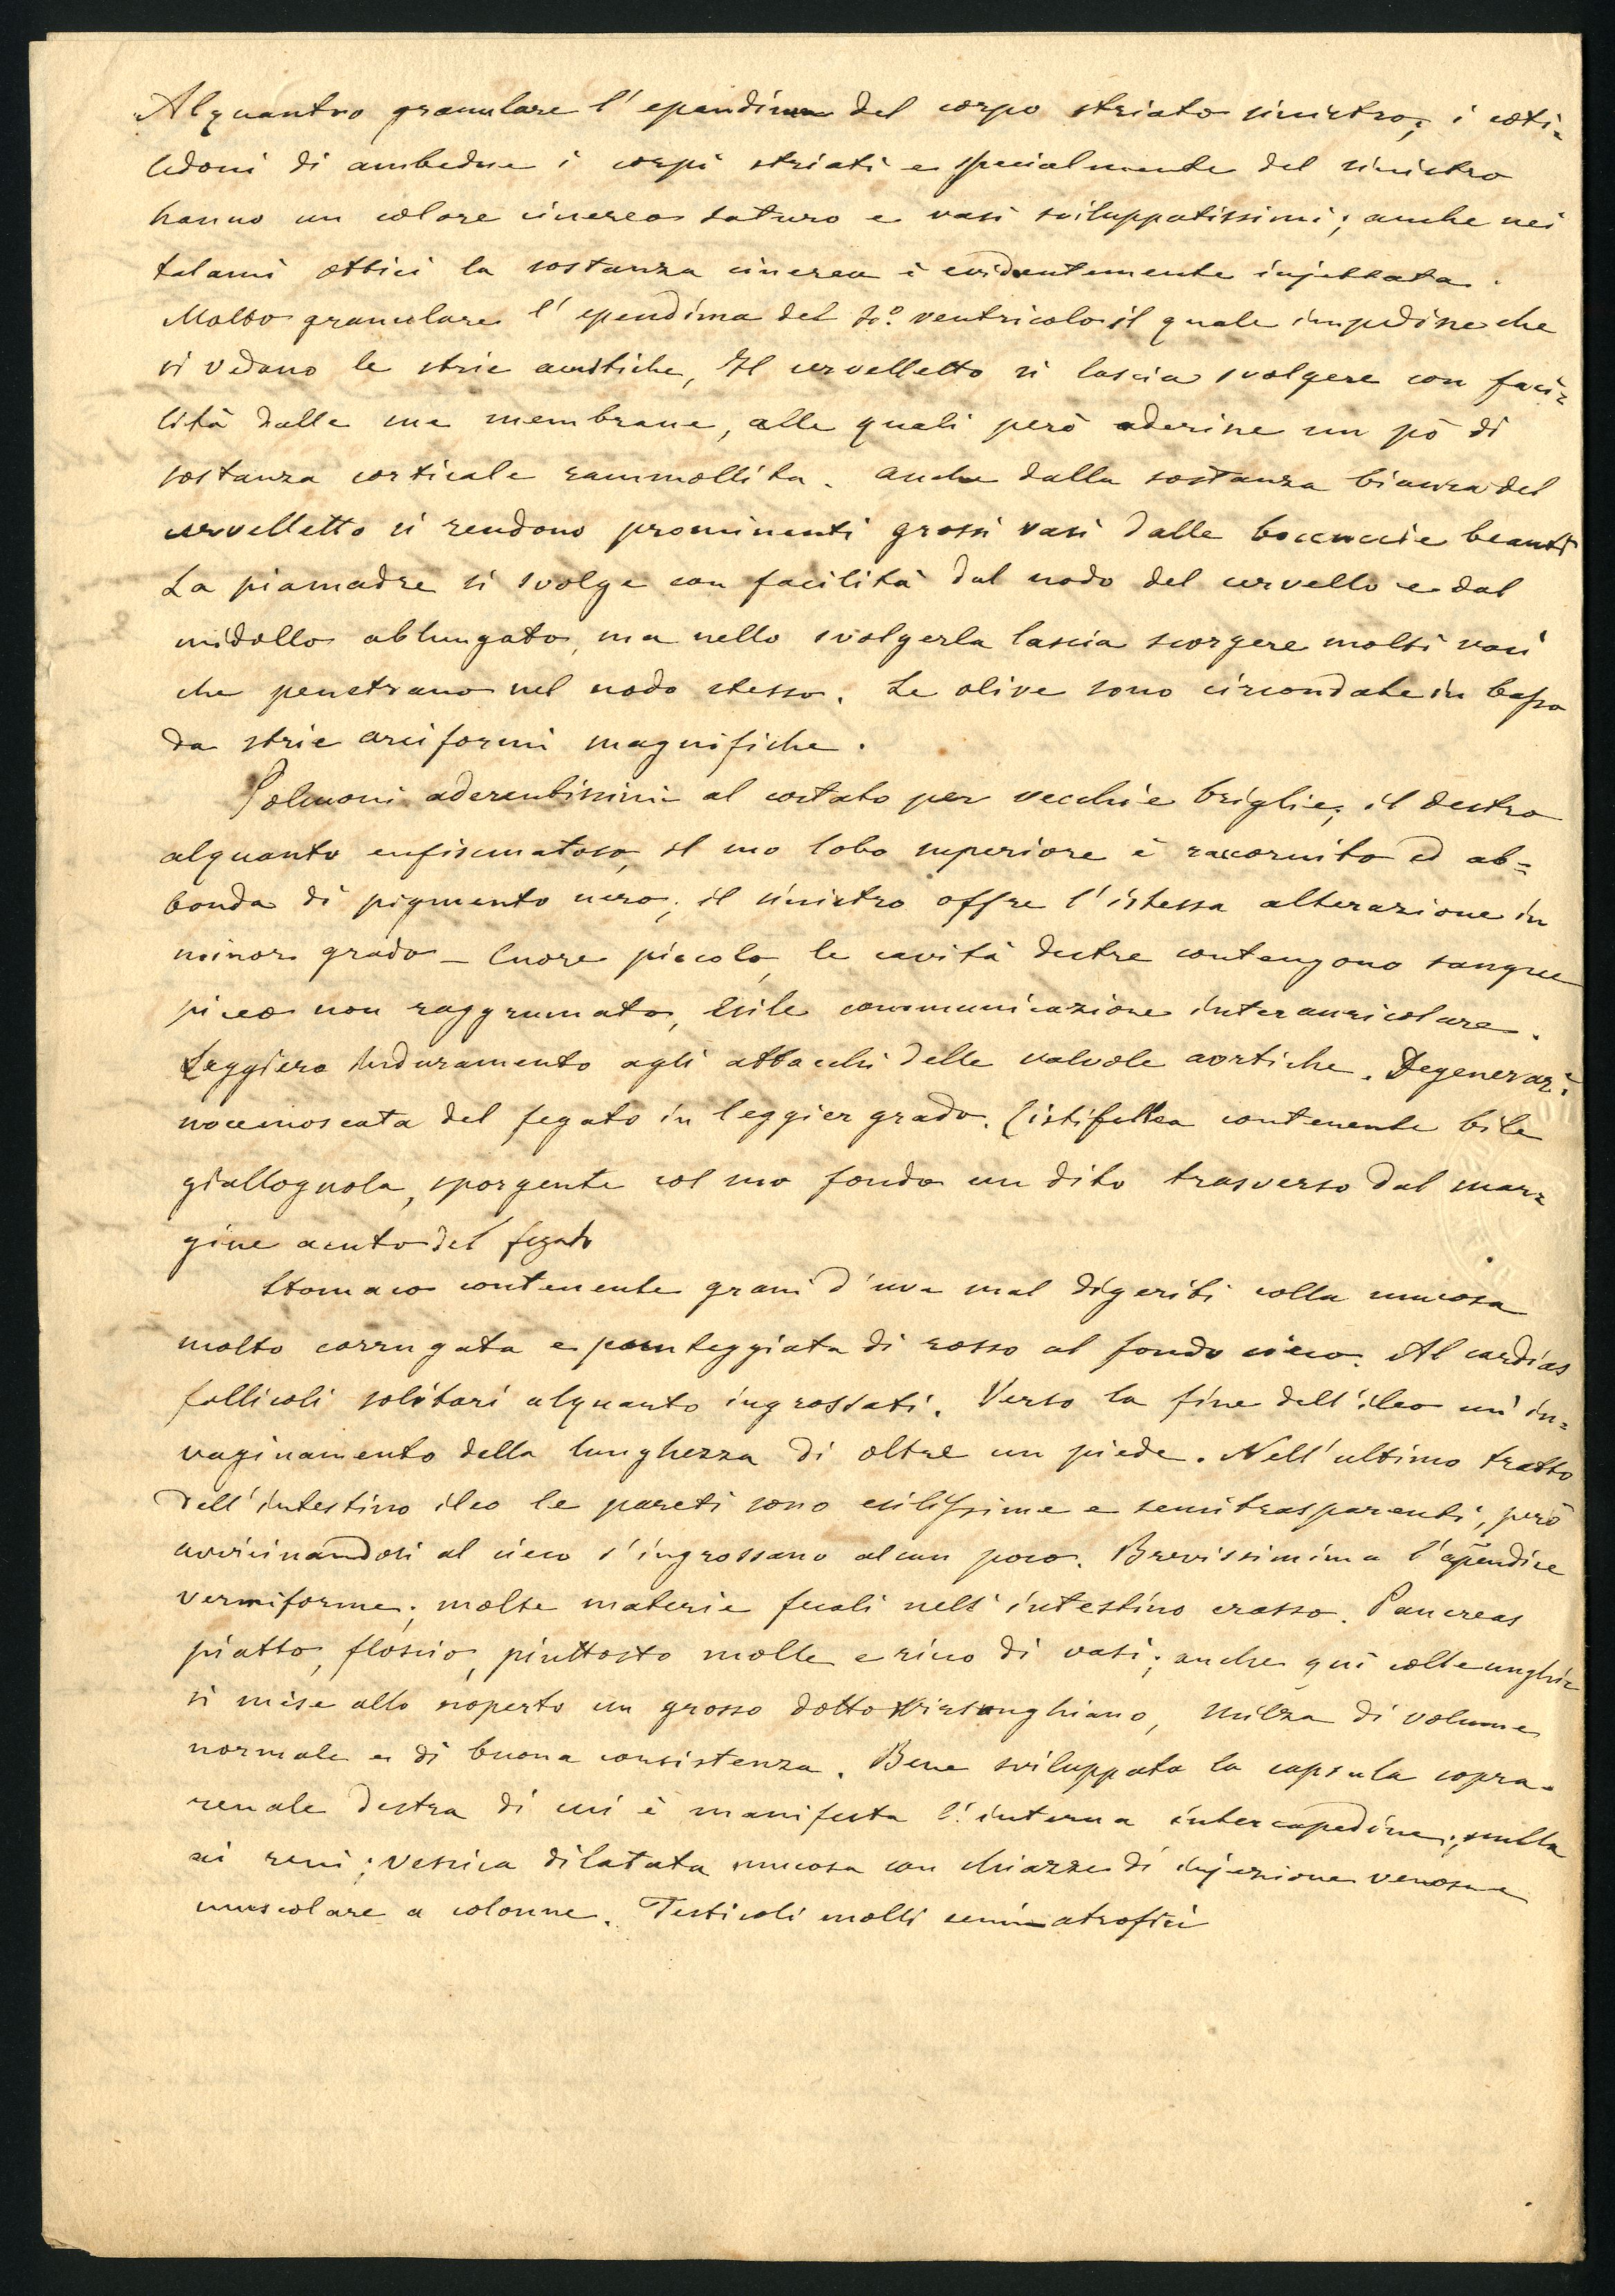 Alquantro granulare l'ependima del corpo striato sinistro; i coti=
ledoni di ambedue i corpi striati e specialmente del sinistro
hanno un colore cinereo saturo e vasi sviluppatissimi; anche nei
talami ottici la sostanza cinerea è evidentemente injettata.
Molto granulare l'ependima del ventricolo il quale impedisce che
si vedano le strie acustiche, Il cervelletto si lascia svolgere con faci=
lità dalle sue membrane, alle quali però aderisce un pò di
sostanza corticale rammollita. Anche dalla sostanza bianca del
cervelletto si rendono prominenti grossi vasi dalle boccuccie beanti
La piamadre si svolge con facilità dal nodo del cervello e dal
midollo ablungato, ma nello svolgerla lascia scorgere molti vasi
che penetrano nel nodo stesso. Le olive sono circondate in basso
da strie arciformi magnifiche.
Polmoni aderentissimi al costato per vecchie briglie; il destro
alquanto enfisematoso, il suo lobo superiore è raccornito ed ab=
bonda di pigmento nero; il sinistro offre l'istessa alterazione in
minor grado – Cuore piccolo, le cavità destre contengono sangue
piceo non raggrumato, Esile communicazione interauricolare.
Leggiero induramento agli attacchi delle valvole aortiche. Degeneraz.e
nocemoscata del fegato in leggier grado. Cistifellea contenente bile
giallognola, sporgente col suo fondo un dito trasverso dal mar=
gine acuto del fegato
Stomaco contenente grani d'uva mal digeriti colla mucosa
molto corrugata e punteggiata di rosso al fondo cieco. Al cardias
follicoli solitari alquanto ingrossati. Verso la fine dell'ileo un' in=
vaginamento della lunghezza di oltre un piede. Nell'ultimo tratto
dell'intestino ileo le pareti sono esilissime e semitrasparenti, però
avvicinandosi al cieco s'ingrossano alcun poco. Brevissimima l'apendice
vermiforme; molte materie fecali nell'intestino crasso. Pancreas
piatto, floscio, piuttosto molle e ricco di vasi; anche quì colle unghie
si mise allo scoperto un grosso dotto Wirsunghiano, Milza di volume
normale e di buona consistenza. Bene sviluppata la capsula sopra=
renale destra di cui è manifesta l'interna intercapedine; nulla
ai reni; vessica dilatata mucosa con chiazze di injezione venosa e
muscolare a colonne. Testicoli molli semiatrofici